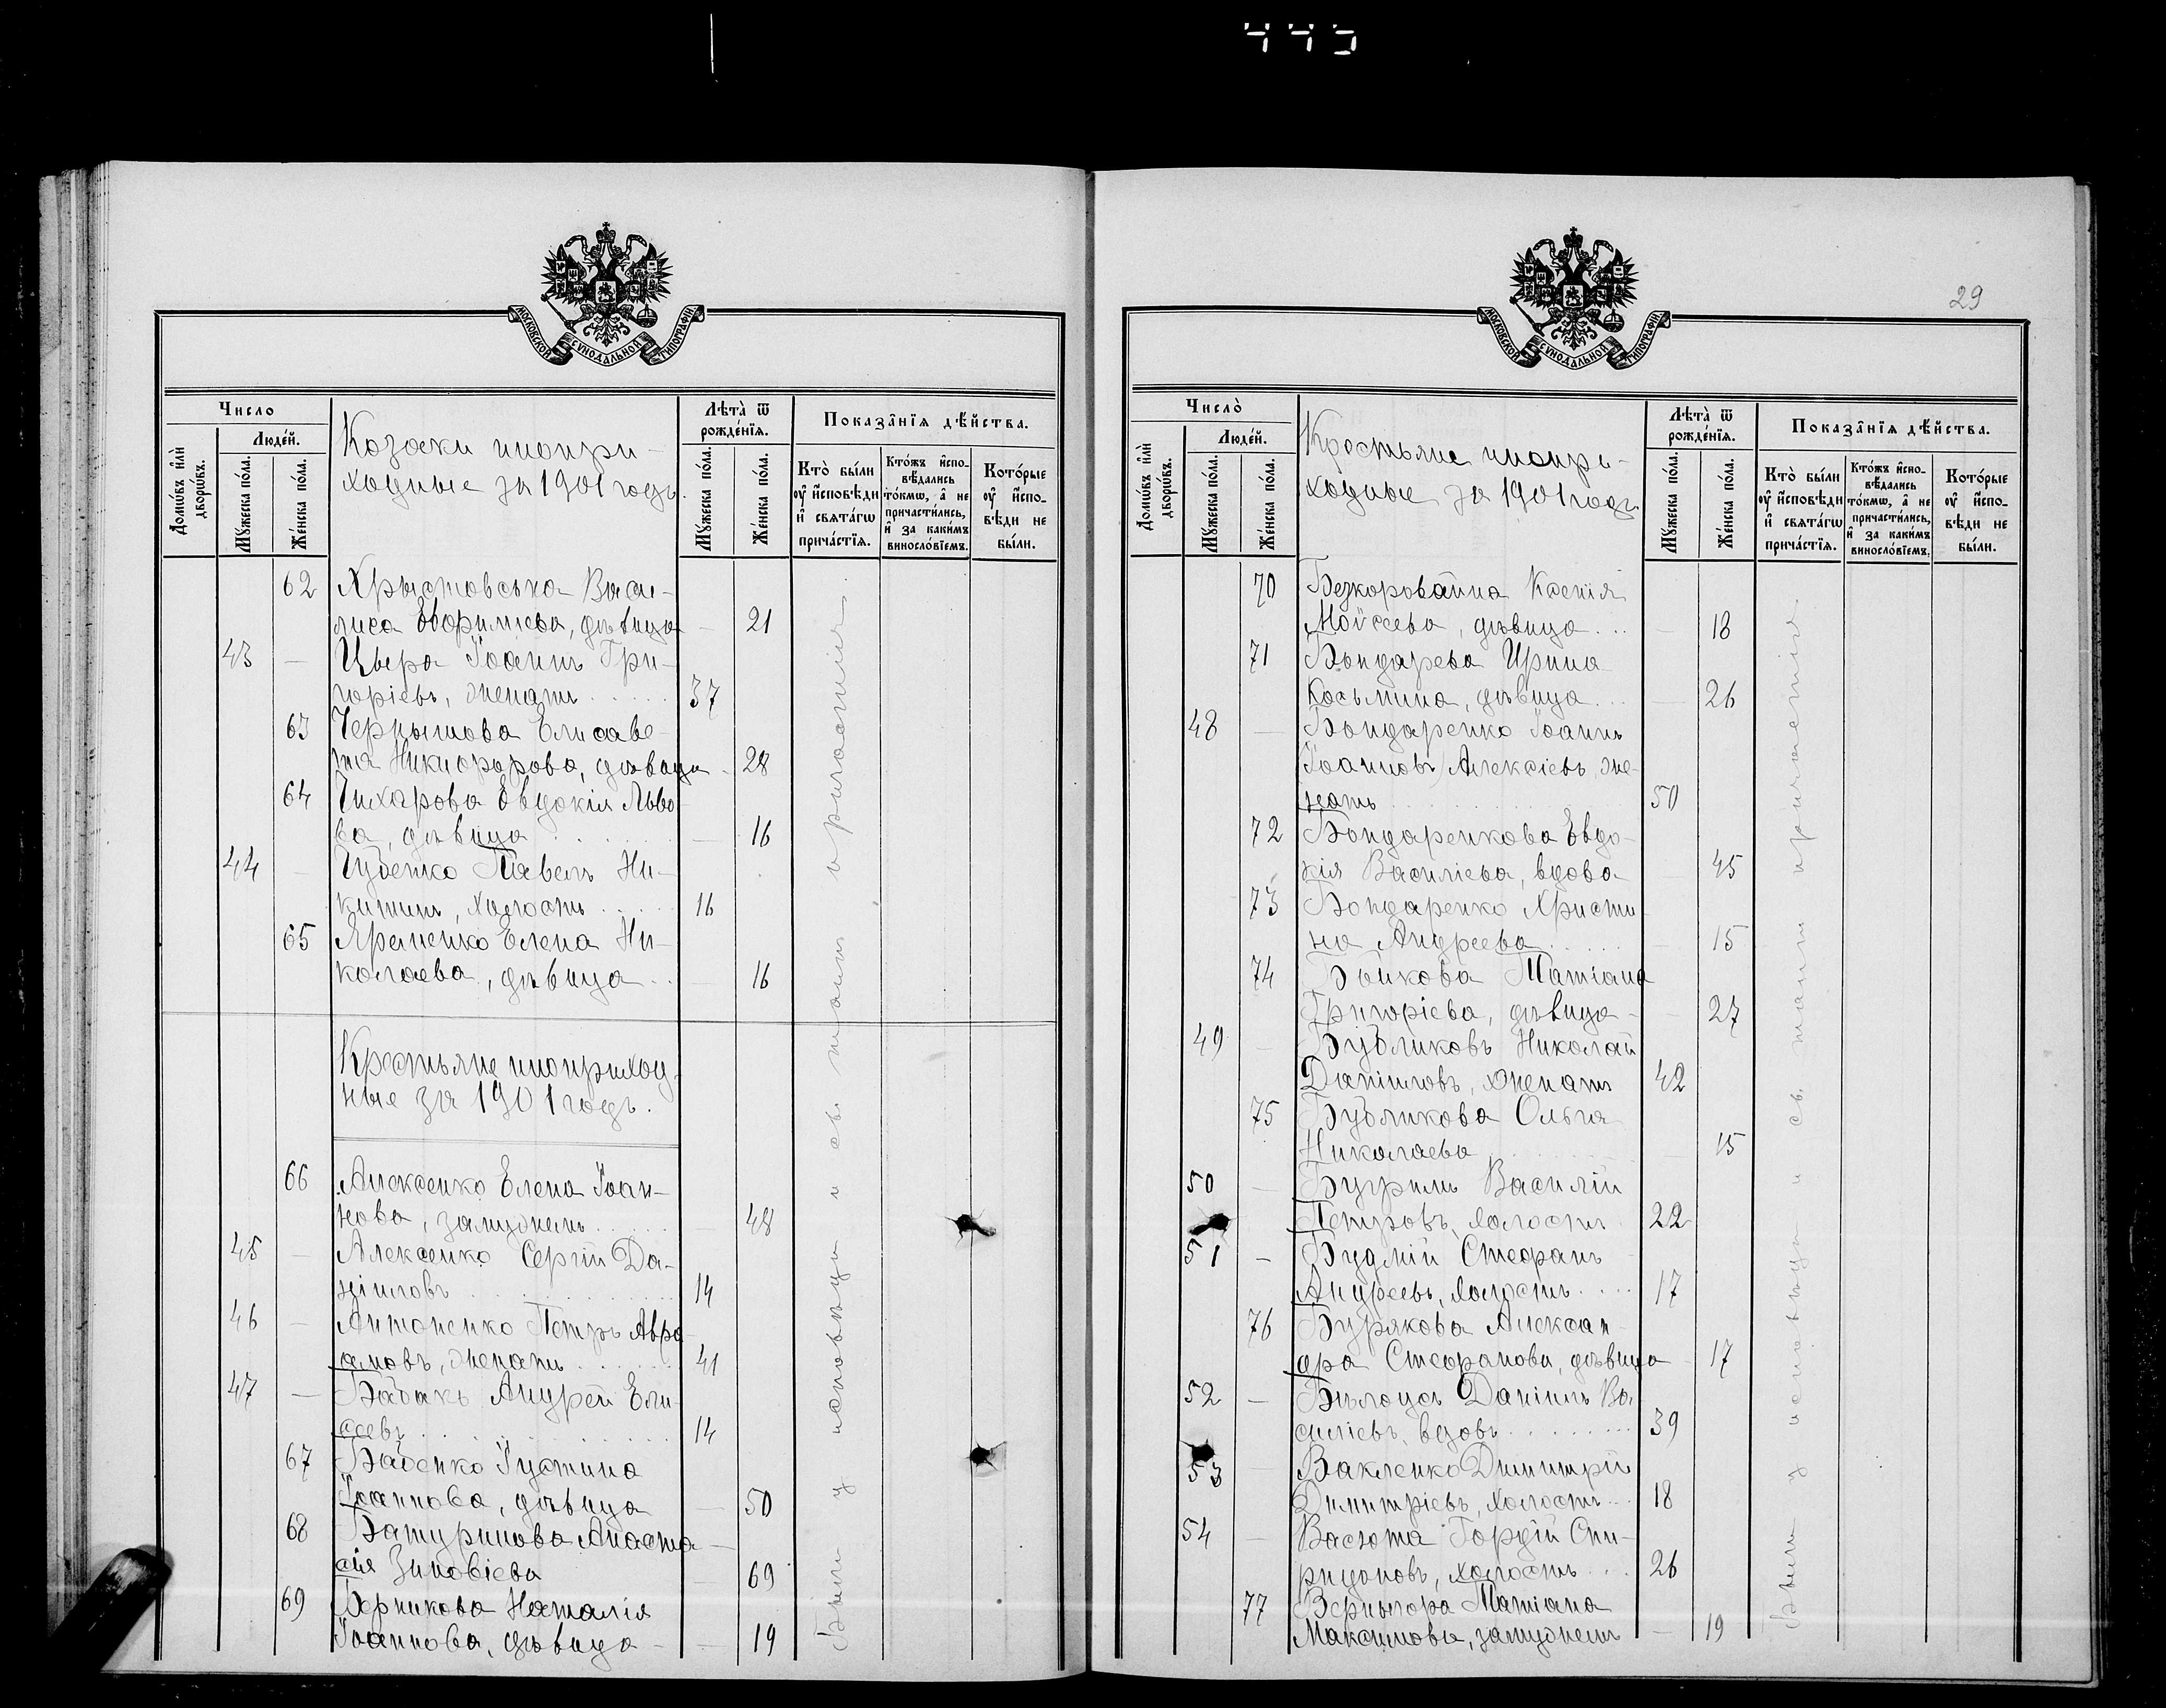 443
МОСКОВСКОЙ СУНОДАЛЬНОЙ ТИПОГРАФІИ
Число
Людей.
Домѡвъ или дворѡвъ.
Мужеска пола.
Женска пола.
Козаки инопри-
ходные за 1901 годъ.
Лѣта ѿ рожденїѧ.
Мужеска пола.
Женска пола.
Показанїѧ дѣйства.
Кто были
оу исповѣди
и свѧтагѡ
причастїѧ.
Ктожъ испо-
вѣдались
токмѡ, а не
причастились,
и за какимъ
винословїемъ.
Которые
оу испо-
вѣди не
были.
62 Хрыстовська Васи-
лиса Евфиміева, дѣвица — 21
43 — Цвера Іоаннъ Гри-
горіевъ, женатъ 37
63 Чернышова Елисаве-
та Никифорова, дѣвица - 28
64 Чихарова Евдокія Льво-
ва, дѣвица — 16
44 — Чубенко Павелъ Ни-
китинъ, холостъ 16
65 Яременко Елена Ни-
колаева, дѣвица — 16
Крестьяне иноприход-
ные за 1901 годъ.
66 Алексенко Елена Іоан-
нова, замужемъ — 48
45 — Алексенко Сергій Да-
ніиловъ 14
46 — Антоненко Петръ Авра-
амовъ, женатъ 41
47 — Бабакъ Андрей Ели-
сеевъ 14
67 Бабенко Іустина
Іоаннова, дѣвица — 50
68 Батуринова Анаста-
сія Зиновіева — 69
69 Берникова Наталія
Іоаннова, дѣвица — 19
Были у исповѣди и св. таинъ причастія
29
МОСКОВСКОЙ СУНОДАЛЬНОЙ ТИПОГРАФІИ
Число
Людей.
Домѡвъ или дворѡвъ.
Мужеска пола.
Женска пола.
Крестьяне инопри-
ходные за 1901 годъ.
Лѣта ѿ рожденїѧ.
Мужеска пола.
Женска пола.
Показанїѧ дѣйства.
Кто были
оу исповѣди
и свѧтагѡ
причастїѧ.
Ктожъ испо-
вѣдались
токмѡ, а не
причастились,
и за какимъ
винословїемъ.
Которые
оу испо-
вѣди не
были.
70 Безкоровайна Ксенія
Мойсеева, дѣвица — 18
71 Бондарева Ирина
Косьмина, дѣвица — 26
48 — Бондаренко Іоаннъ
Іоанновъ) Алексіевъ, же-
натъ 50
72 Бондаренкова Евдо-
кія Василіева, вдова — 45
73 Бондаренко Христи-
на Андреева — 15
74 Бойкова Татіана
Григоріева, дѣвица — 27
49 — Бубликовъ Николай
Даніиловъ, женатъ 42
75 Бубликова Ольга
Николаева — 15
50 — Бугримъ Василій
Петровъ, холостъ 22
51 — Будмій Стефанъ
Андреевъ, холостъ 17
76 Бурякова Алексан-
дра Стефанова, дѣвица - 17
52 — Бѣлоусъ Даніилъ Ва-
силіевъ, вдовъ 39
53 — Вакленко Димитрій
Димитріевъ, холостъ 18
54 — Васюта Гордій Спи-
ридоновъ, холостъ 26
77 Вернигора Татіана
Максимова, замужемъ — 19
Были у исповѣди и св. таинъ причастія